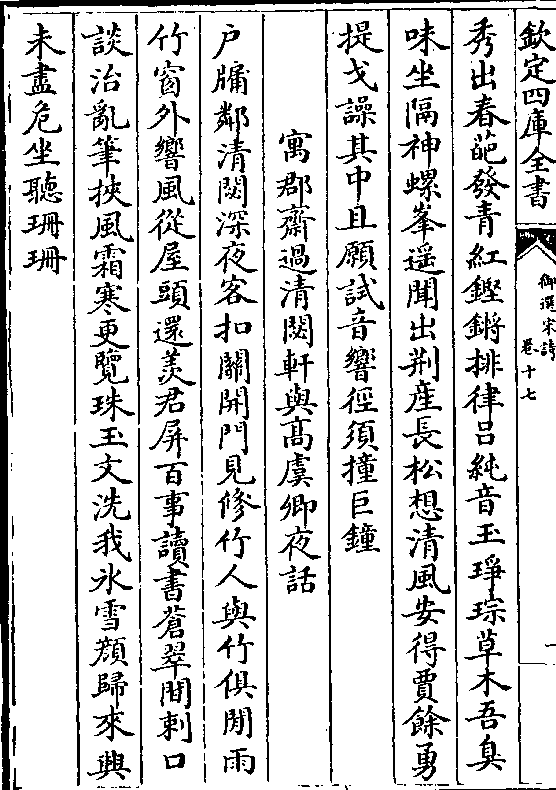 欽定四庫全書
御選宋詩
卷十七
秀出春葩發青紅鏗鏘排律呂純音玉琤琮草木吾臭
味坐隔神螺峯遥聞出荆産長松想清風安得賈餘勇
提戈譟其中且願試音響徑須撞巨鐘
寓郡齋過清閟軒與髙虞卿夜話
户牖鄰清閟深夜客扣關開門見修竹人與竹俱閒雨
竹窗外響風從屋頭還羨君屏百事讀書蒼翠間剌口
談治亂筆挾風霜寒更覽珠玉文洗我氷雪顔歸來興
未盡危坐聽珊珊